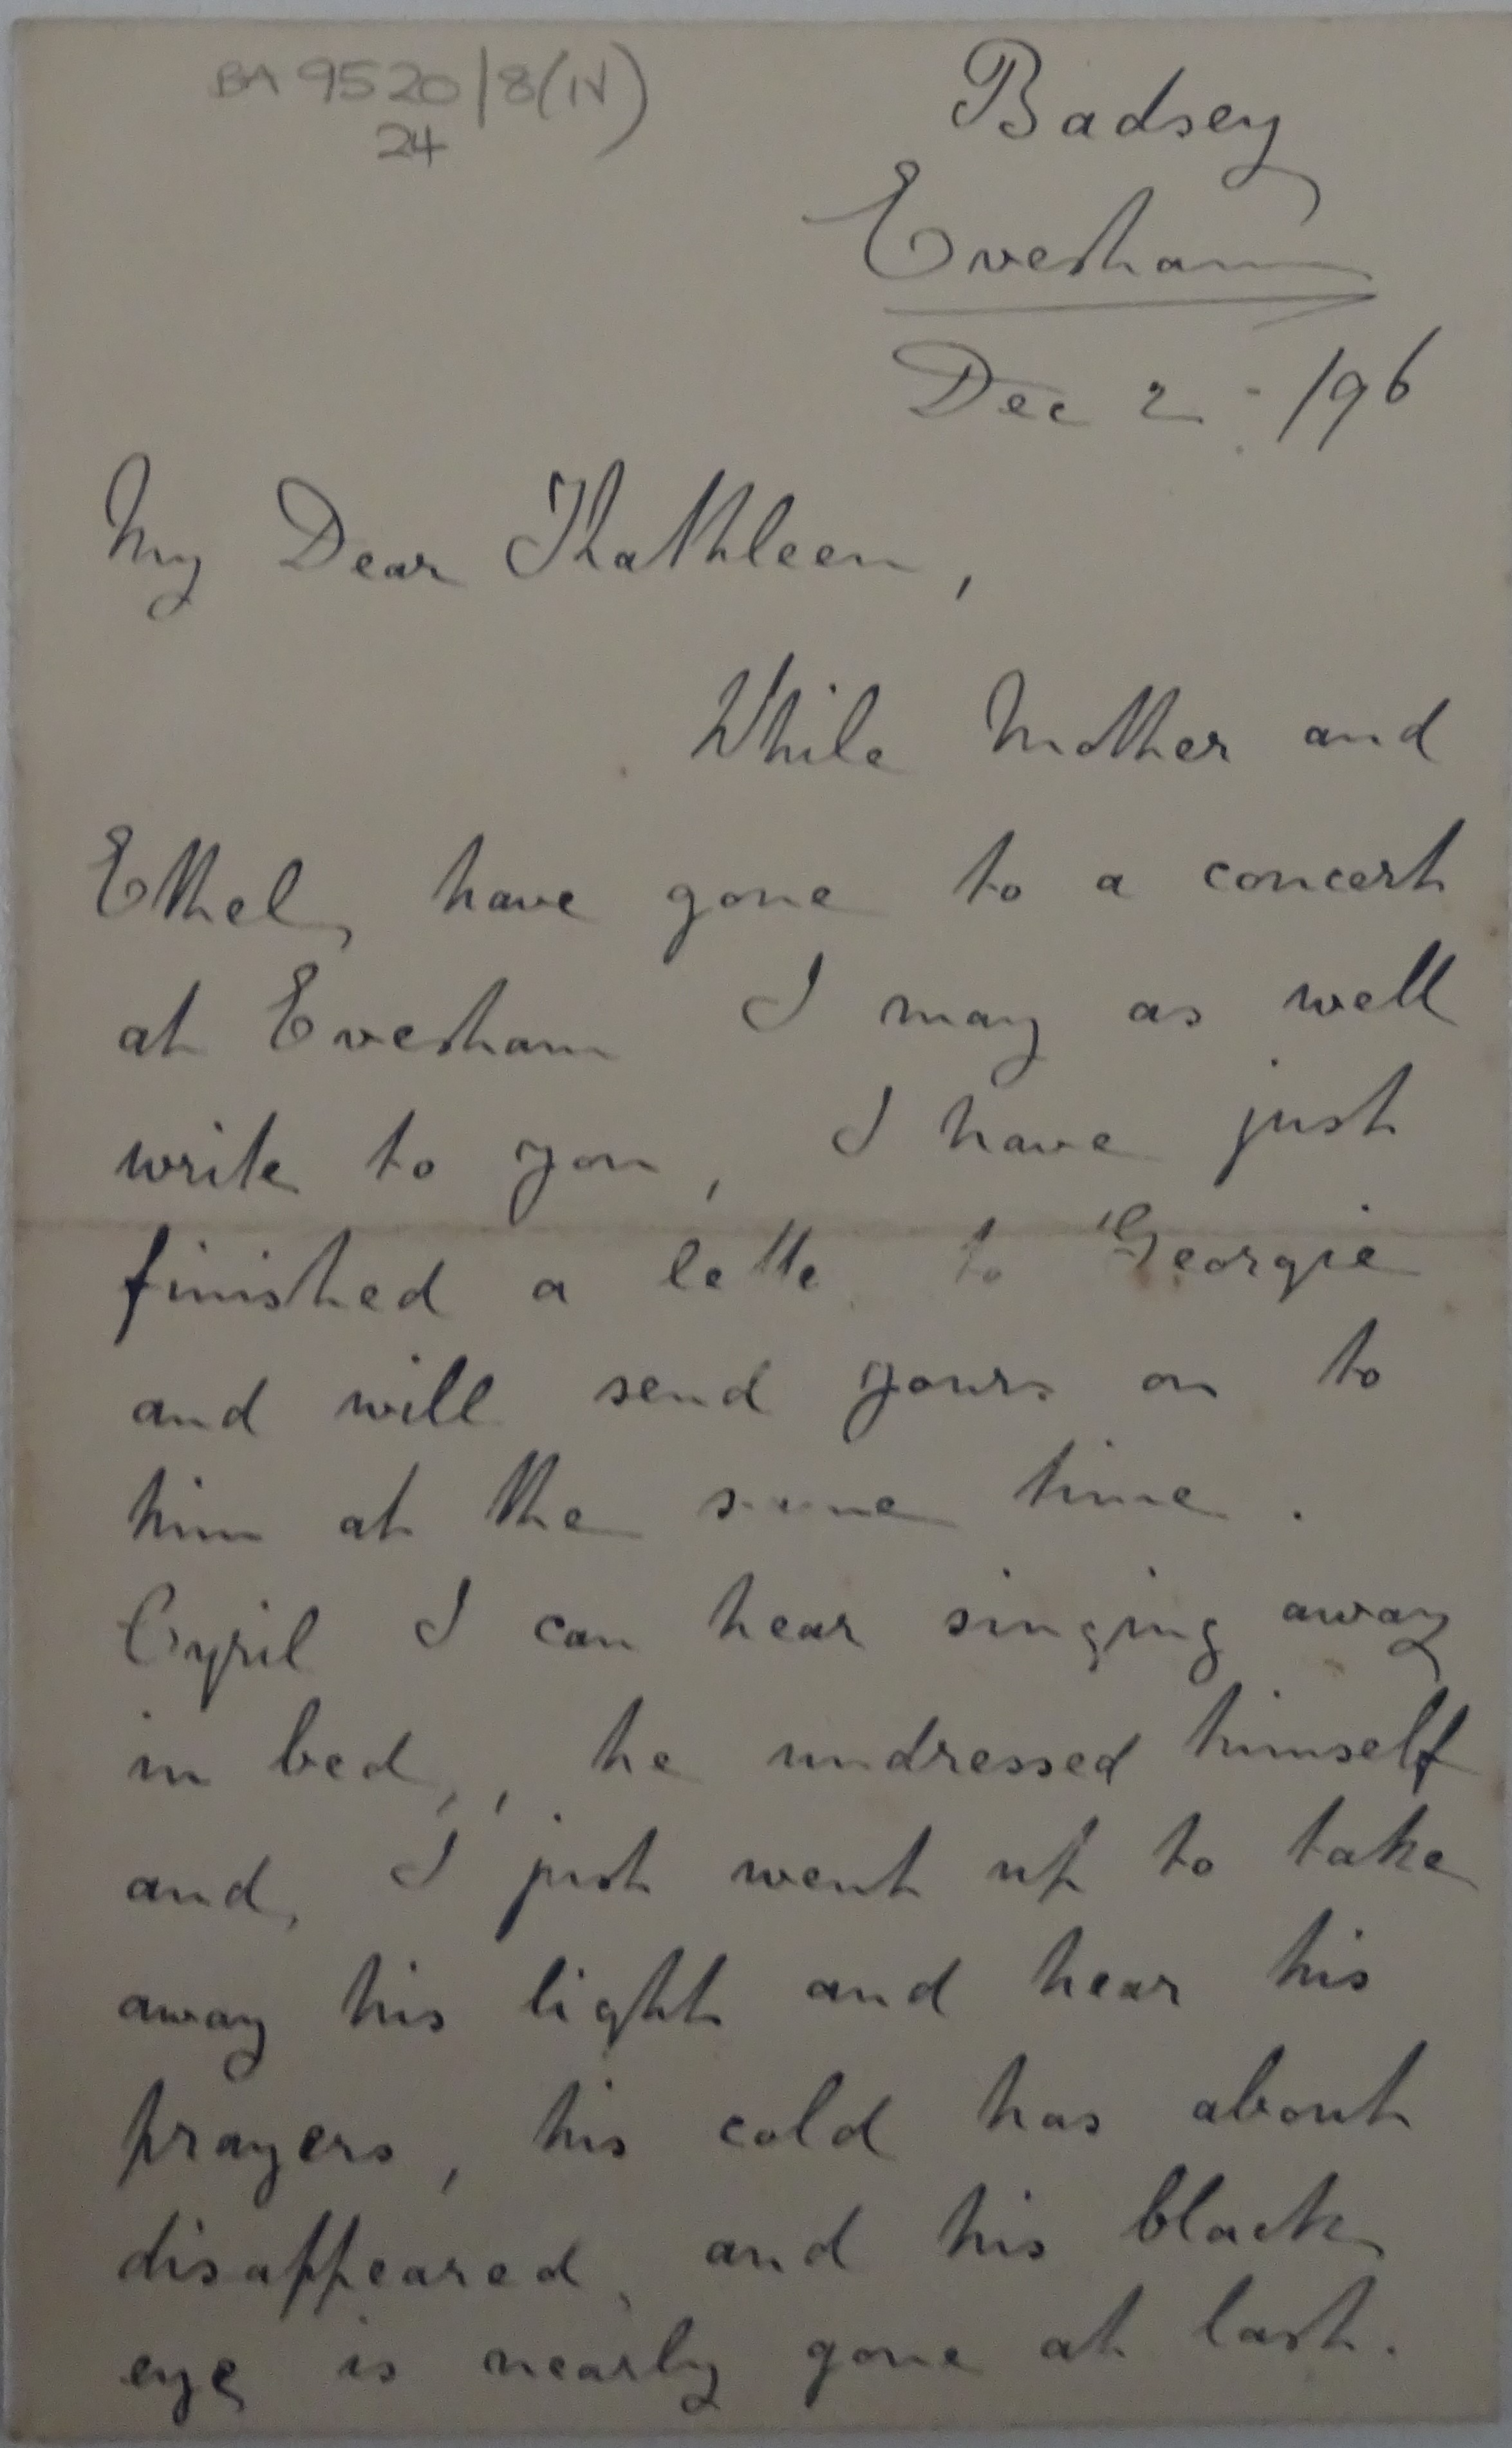 BA 9520/8(IV)
24
Badsey
Evesham
Dec 2. /96
My Dear Kathleen,
While Mother and
Ethel, have gone to a concert
at Evesham I may as well
write to you, I have just
finished a lette to Georgie
and will send yours on to
him at the same time.
Cyril I can hear singing away
in bed,, he undressed himself
and, I just went up to take
away his light and hear his
prayers, his cold has about
disappeared, and his black
eye is nearly gone at last.